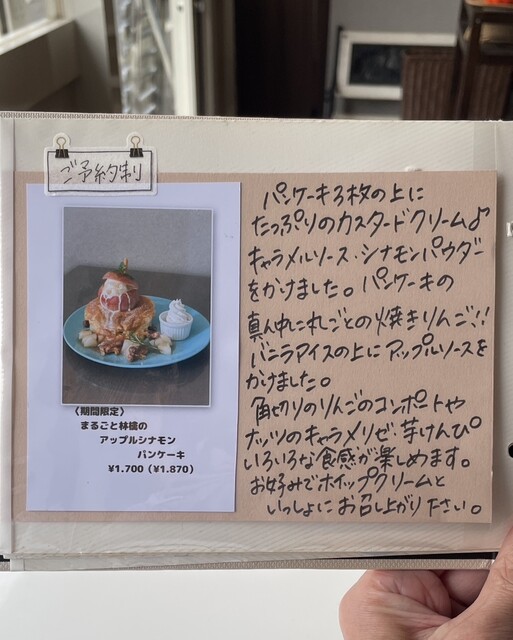 ご予約制
〈期間限定〉
まるごと林檎の
アップルシナモン
パンケーキ
¥1.700(¥1.870)
パンケーキ3枚の上に
たっぷりのカスタードクリーム♪
キャラメルソース・シナモンパウダー
をかけました。パンケーキの
真ん中に丸ごとの焼きりんご!!
バニラアイスの上にアップルソースを
かけました。
角切りのりんごのコンポートや
ナッツのキャラメリゼ、芋けんぴ
いろいろな食感が楽しめます。
お好みでホイップクリームと
いっしょにお召し上がり下さい。